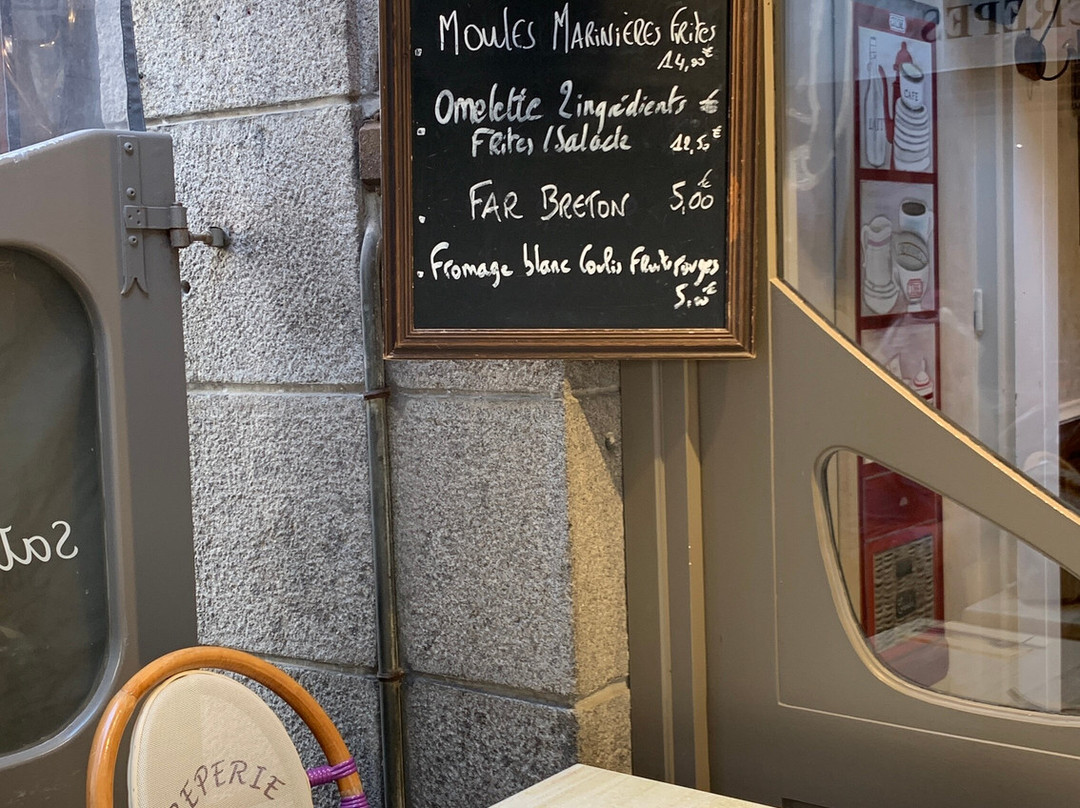 MOULES MARINIÈRES FRITES
14,00€
Omelette 2 ingrédients
FRITES / Salade 12,50€
FAR BRETON 5,00€
Fromage blanc Coulis Fruits rouges
5,00€
CREPES
CAFE
Sal
EPERIE